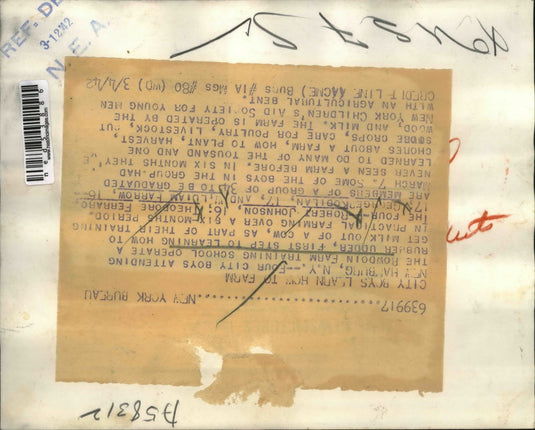 A58312
639917....................NEW YORK BUREAU
CITY BOYS LEARN HOW TO FARM
NEW HAMBURG, N.Y.--FOUR CITY BOYS ATTENDING
THE BOWDOIN FARM TRAINING SCHOOL OPERATE A
RUBBER UDDER, FIRST STEP TO LEARNING HOW TO
GET MILK OUT OF A COW, AS PART OF THEIR TRAINING
PRACTICAL FARMING OVER A SIX-MONTHS PERIOD
THE FOUR--ROBERT JOHNSON, 16; THEODORE
17; 17, AND WILLIAM FARROW, 16--
ARE MEMBERS OF A GROUP OF 34 TO BE GRADUATED
MARCH 7. SOME OF THE BOYS IN THE GROUP-HAD
NEVER SEEN A FARM BEFORE. IN SIX MONTHS THEY'
LEARNED TO DO MANY OF THE TOUSAND AND ONE
CHORES ABOUT A FARM, HOW TO PLANT, HARVEST,
CROPS, CARE FOR POULTRY, LIVESTOCK, CUT
WOOD, AND MILK. THE FARM IS OPERATED BY THE
NEW YORK CHILDREN'S AID SOCIETY FOR YOUNG MEN
WITH AN AGRICULTURAL BENT.
CREDIT LINE (ACME) BUDS #1A MGS #80 (WD) 3/4/42
REF. DE
3-12-42
N. E. A.